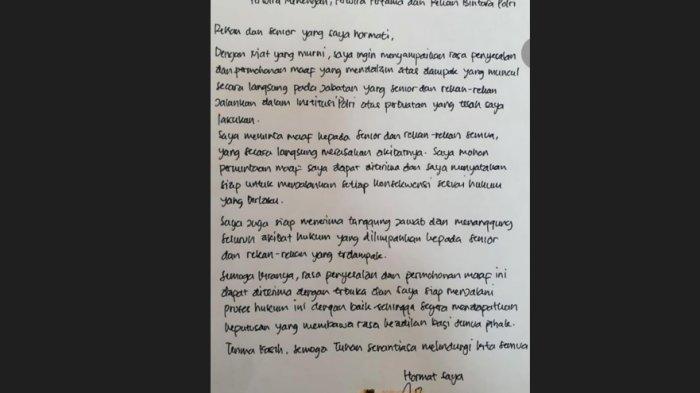 Perwira Menengah, Perwira Pertama dan Rekan Bintara Polri
Rekan dan senior yang saya hormati,
Dengan niat yang murni, saya ingin menyampaikan rasa penyesalan
dan permohonan maaf yang mendalam atas dampak yang muncul
secara langsung pada jabatan yang senior dan rekan-rekan
jalankan dalam institusi Polri atas perbuatan yang telah saya
lakukan.
Saya meminta maaf kepada senior dan rekan-rekan semua,
yang secara langsung merasakan akibatnya. Saya mohon
permintaan maaf saya dapat diterima dan saya menyatakan
siap untuk menjalankan setiap konsekwensi sesuai hukum
yang berlaku.
Saya juga siap menerima tanggung jawab dan menanggung
seluruh akibat hukum yang dilimpahkan kepada senior
dan rekan-rekan yang terdampak.
Semoga kiranya, rasa penyesalan dan permohonan maaf ini
dapat diterima dengan terbuka dan saya siap menjalani
proses hukum ini dengan baik sehingga segera mendapatkan
keputusan yang membawa rasa keadilan bagi semua pihak.
Terima kasih, semoga Tuhan senantiasa melindungi kita semua
Hormat saya